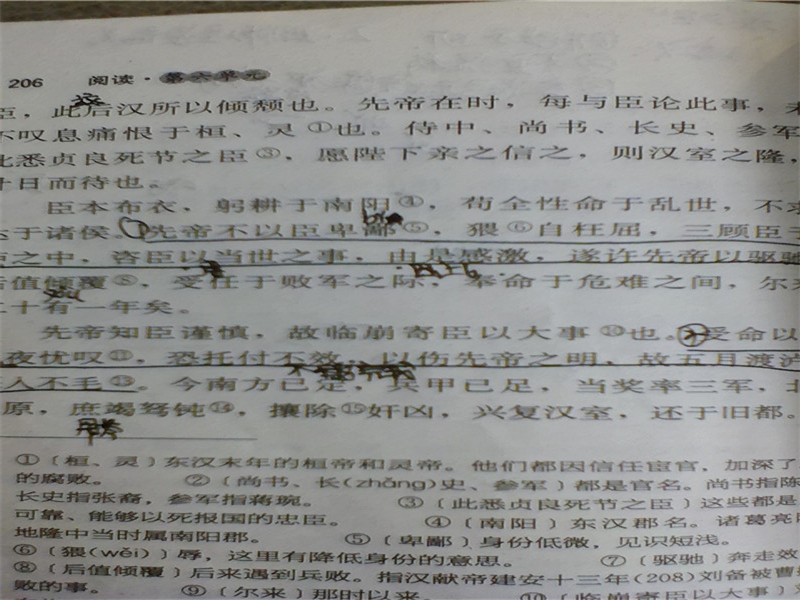 206 阅读·第六单元
臣，此后汉所以倾颓也。先帝在时，每与臣论此事，未
不叹息痛恨于桓、灵①也。侍中、尚书、长史、参军
此悉贞良死节之臣③，愿陛下亲之信之，则汉室之隆，
计日而待也。
臣本布衣，躬耕于南阳④，苟全性命于乱世，不求
达于诸侯。先帝不以臣卑鄙⑤，猥⑥自枉屈，三顾臣于
之中，咨臣以当世之事，由是感激，遂许先帝以驱驰
后值倾覆⑧，受任于败军之际，奉命于危难之间，尔来
二十有一年矣。
先帝知臣谨慎，故临崩寄臣以大事⑩也。受命以
夜忧叹⑪，恐托付不效，以伤先帝之明，故五月渡泸
入不毛⑬。今南方已定，兵甲已足，当奖率三军，北
原，庶竭驽钝⑭，攘除⑮奸凶，兴复汉室，还于旧都。
①〔桓、灵〕东汉末年的桓帝和灵帝。他们都因信任宦官，加深了
的腐败。 ②〔尚书、长(zhǎng)史、参军〕都是官名。尚书指陈
长史指张裔，参军指蒋琬。 ③〔此悉贞良死节之臣〕这些都是
可靠、能够以死报国的忠臣。 ④〔南阳〕东汉郡名。诸葛亮
地隆中当时属南阳郡。 ⑤〔卑鄙〕身份低微，见识短浅。
⑥〔猥(wěi)〕辱，这里有降低身份的意思。 ⑦〔驱驰〕奔走效
⑧〔后值倾覆〕后来遇到兵败。指汉献帝建安十三年(208)刘备被曹
败的事。 ⑨〔尔来〕那时以来。 ⑩〔临崩寄臣以大事〕